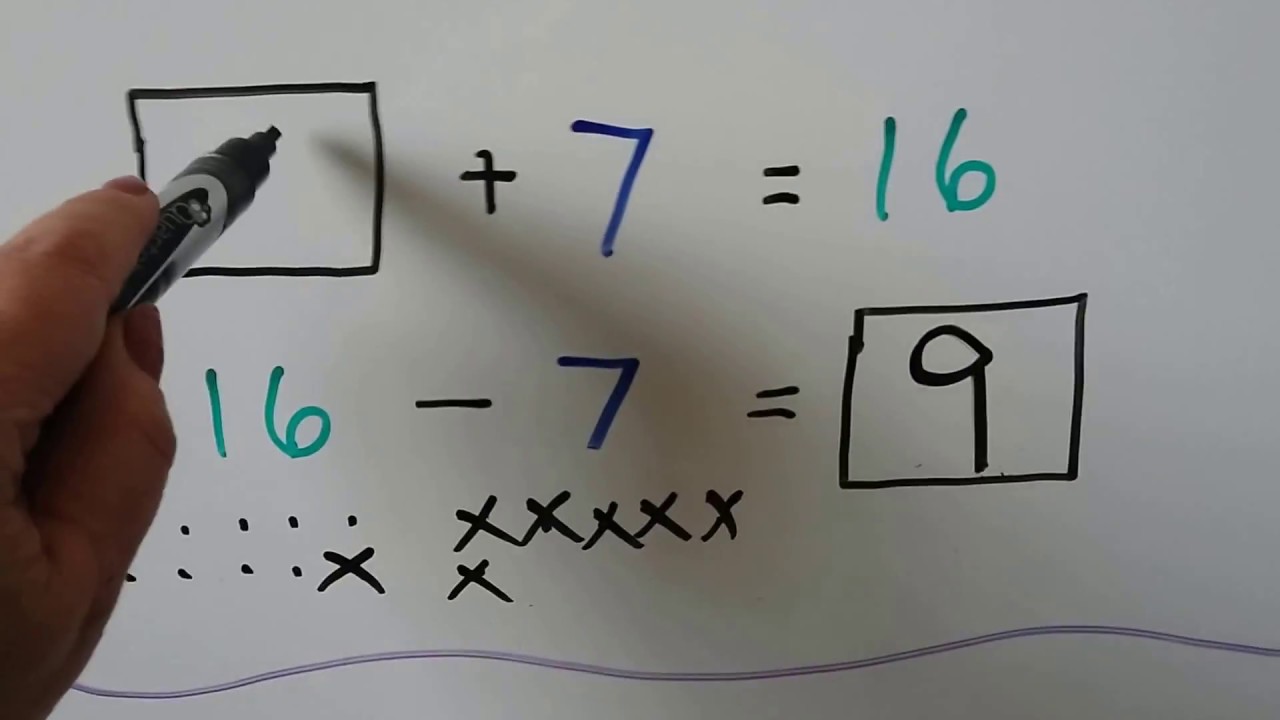 + 7 = 16
16 - 7 = 9